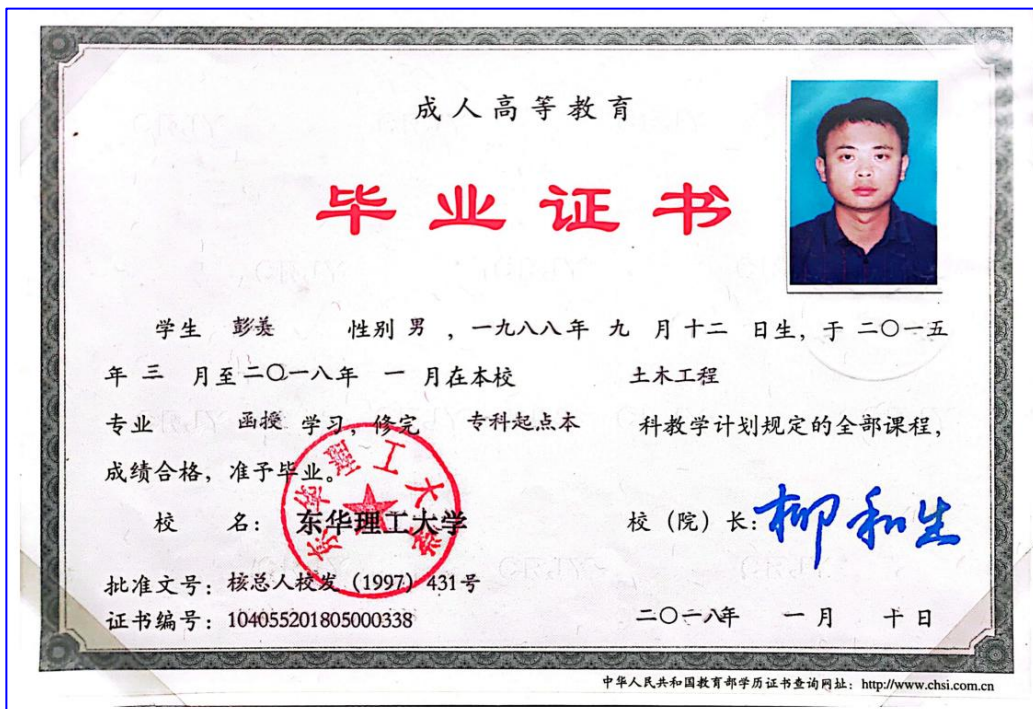 成人高等教育
毕业证书
学生 彭羑 性别 男 ，一九八八年 九 月十二 日生，于 二〇一五
年 三 月至二〇一八年 一 月在本校 土木工程
专业 函授 学习，修完 专科起点本 科教学计划规定的全部课程，
成绩合格，准予毕业。
校 名：东华理工大学
校（院）长：柳和生
批准文号：核总人校发（1997）431号
证书编号：104055201805000338
二〇一八年 一月 十日
东华理工大学
中华人民共和国教育部学历证书查询网址：http://www.chsi.com.cn